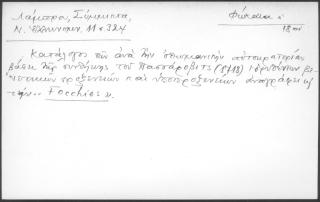 Λάμπρου, Σύμμικτα, Φώκαια
Ν. Ἑλληνομν. 11 σ. 324 18 αἰ
Κατάλογος τῶν ἀνὰ τὴν ὀθωμανικὴν αὐτοκρατορίαν
βάσει τῆς συνθήκης τοῦ Πασσάροβιτς (1718) ἱδρυθέντων
προξενείων καὶ ὑποπροξενείων ἀναγράφει
Focchies